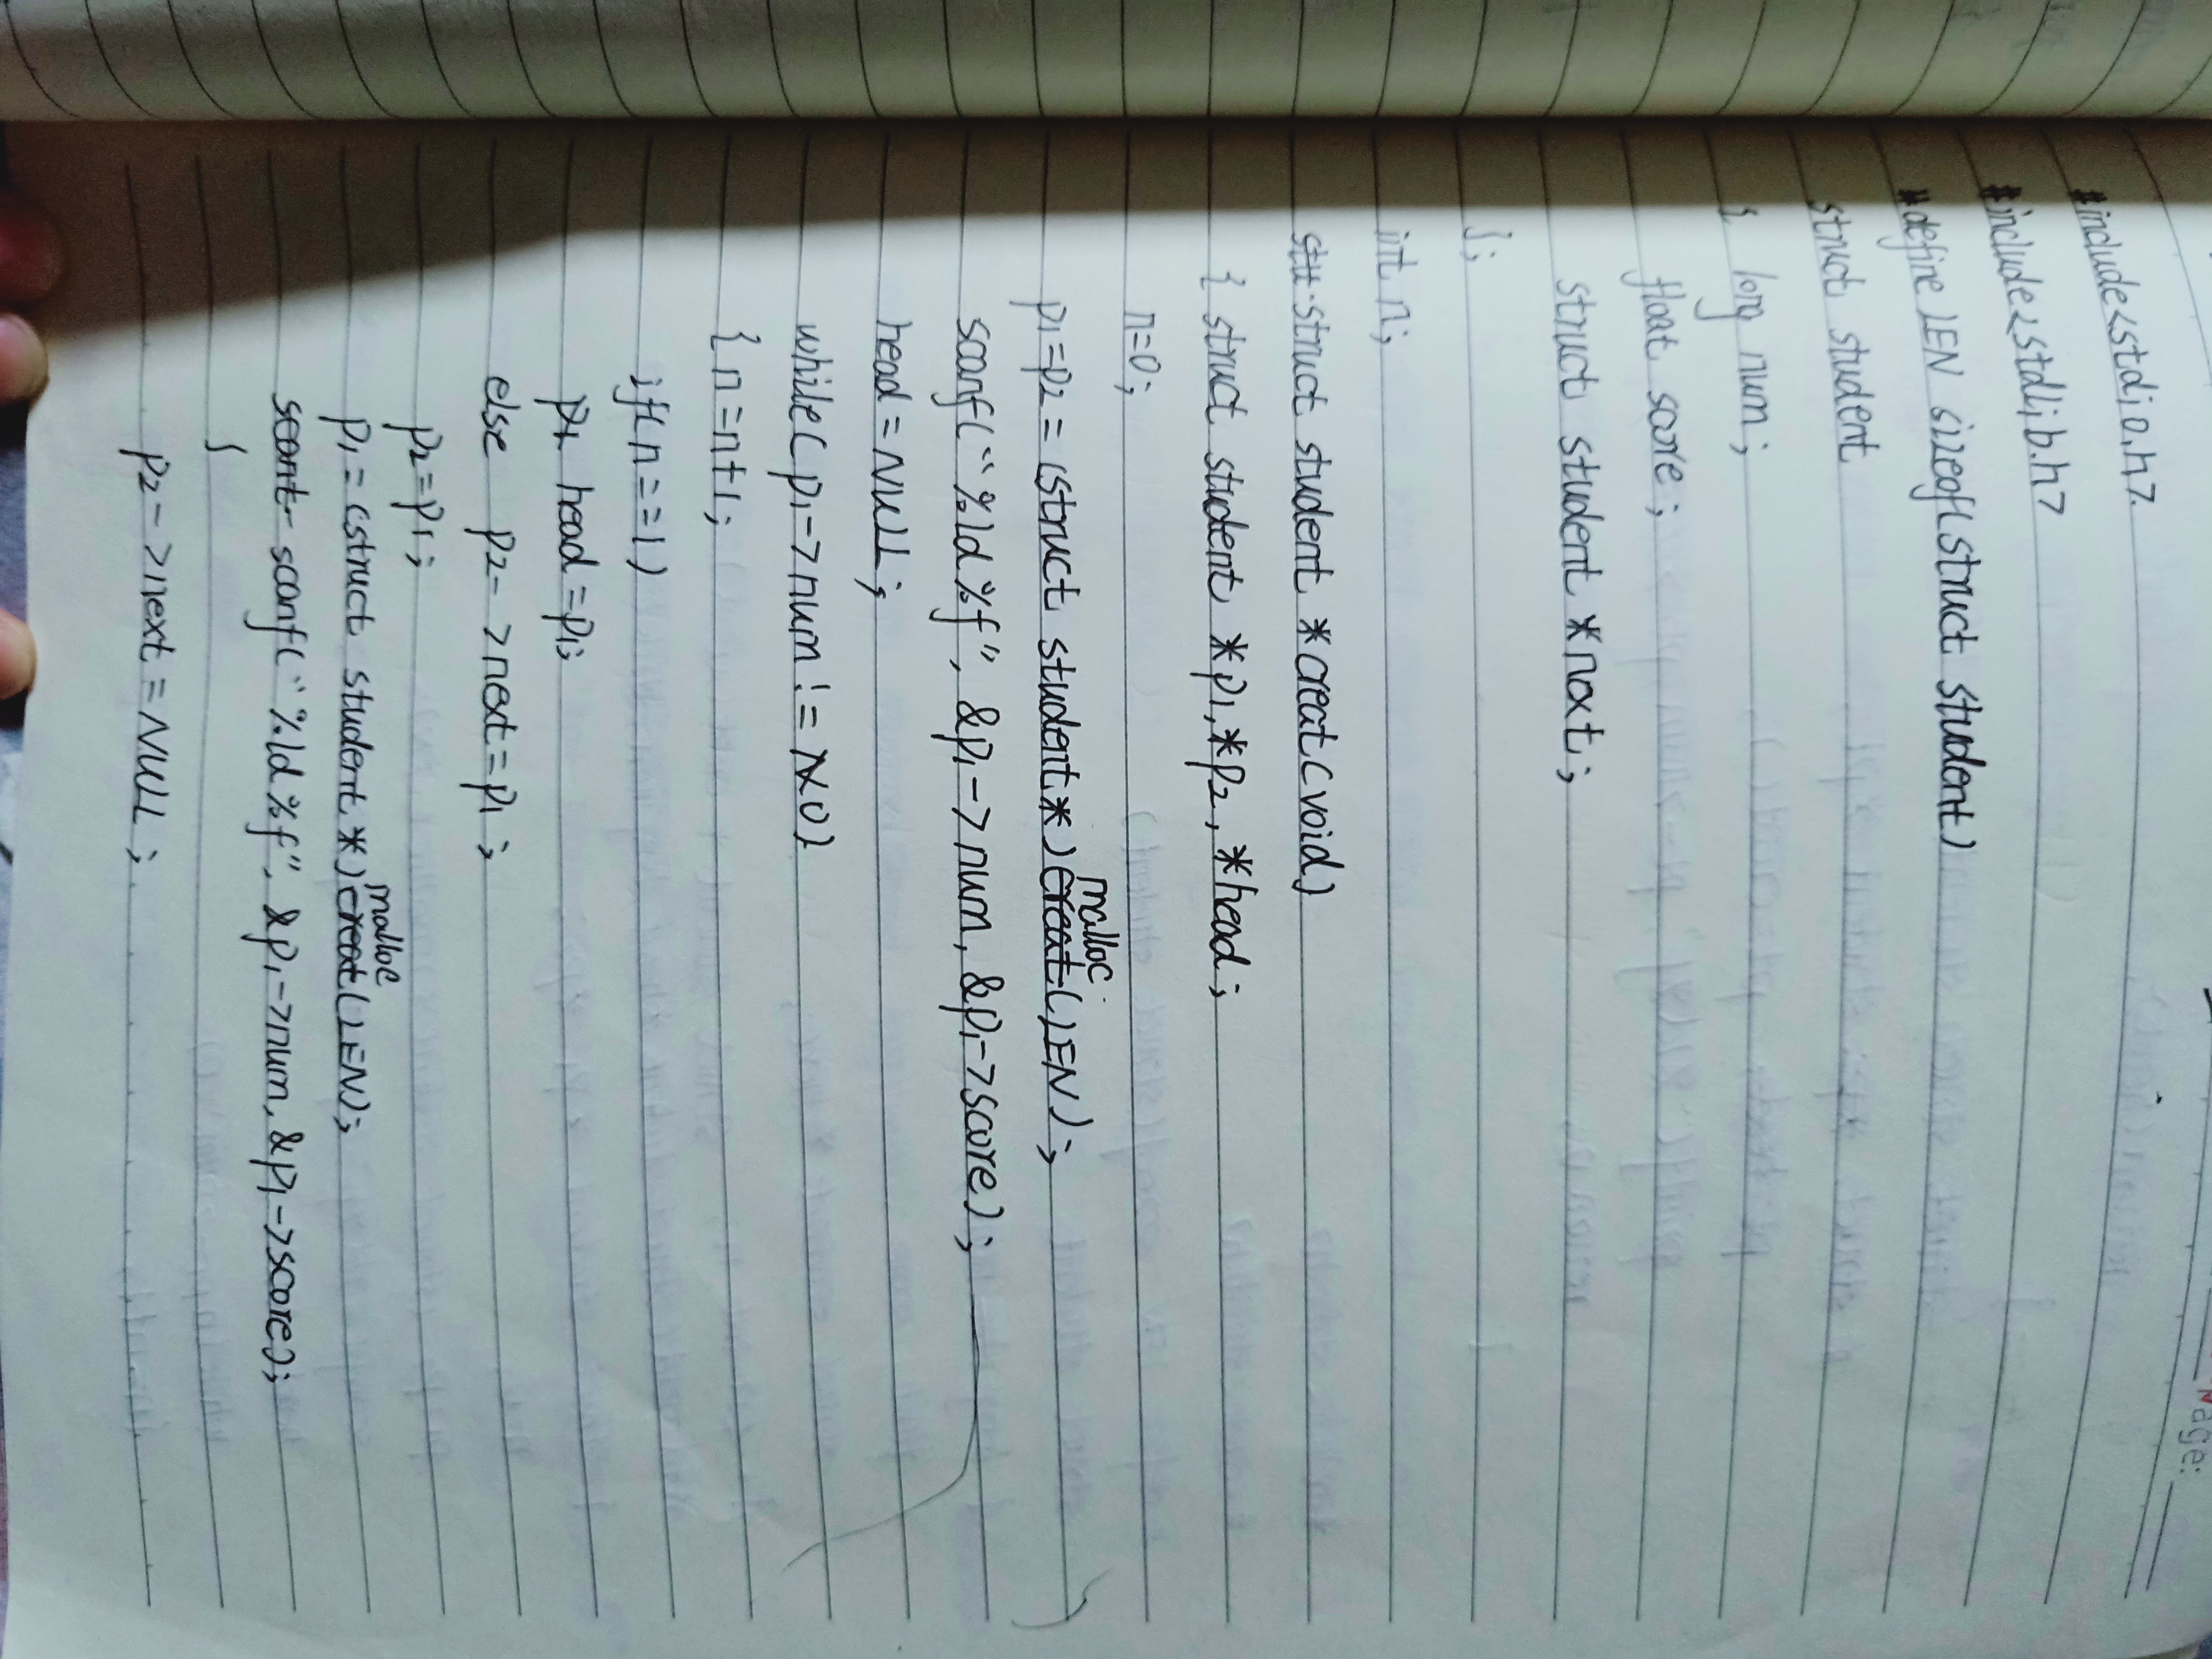 Page:
#include<stdio.h>
#include<stdlib.h>
#define LEN sizeof(struct student)
struct student
{ long num;
float score;
struct student *next;
};
int n;
struct student *creat(void)
{ struct student *p1,*p2,*head;
n=0;
p1=p2=(struct student*)malloc(LEN);
scanf("%ld%f",&p1->num,&p1->score);
head=NULL;
while(p1->num!=0)
{ n=n+1;
if(n==1)
head=p1;
else p2->next=p1;
p2=p1;
p1=(struct student*)malloc(LEN);
scanf("%ld%f",&p1->num,&p1->score);
}
p2->next=NULL;